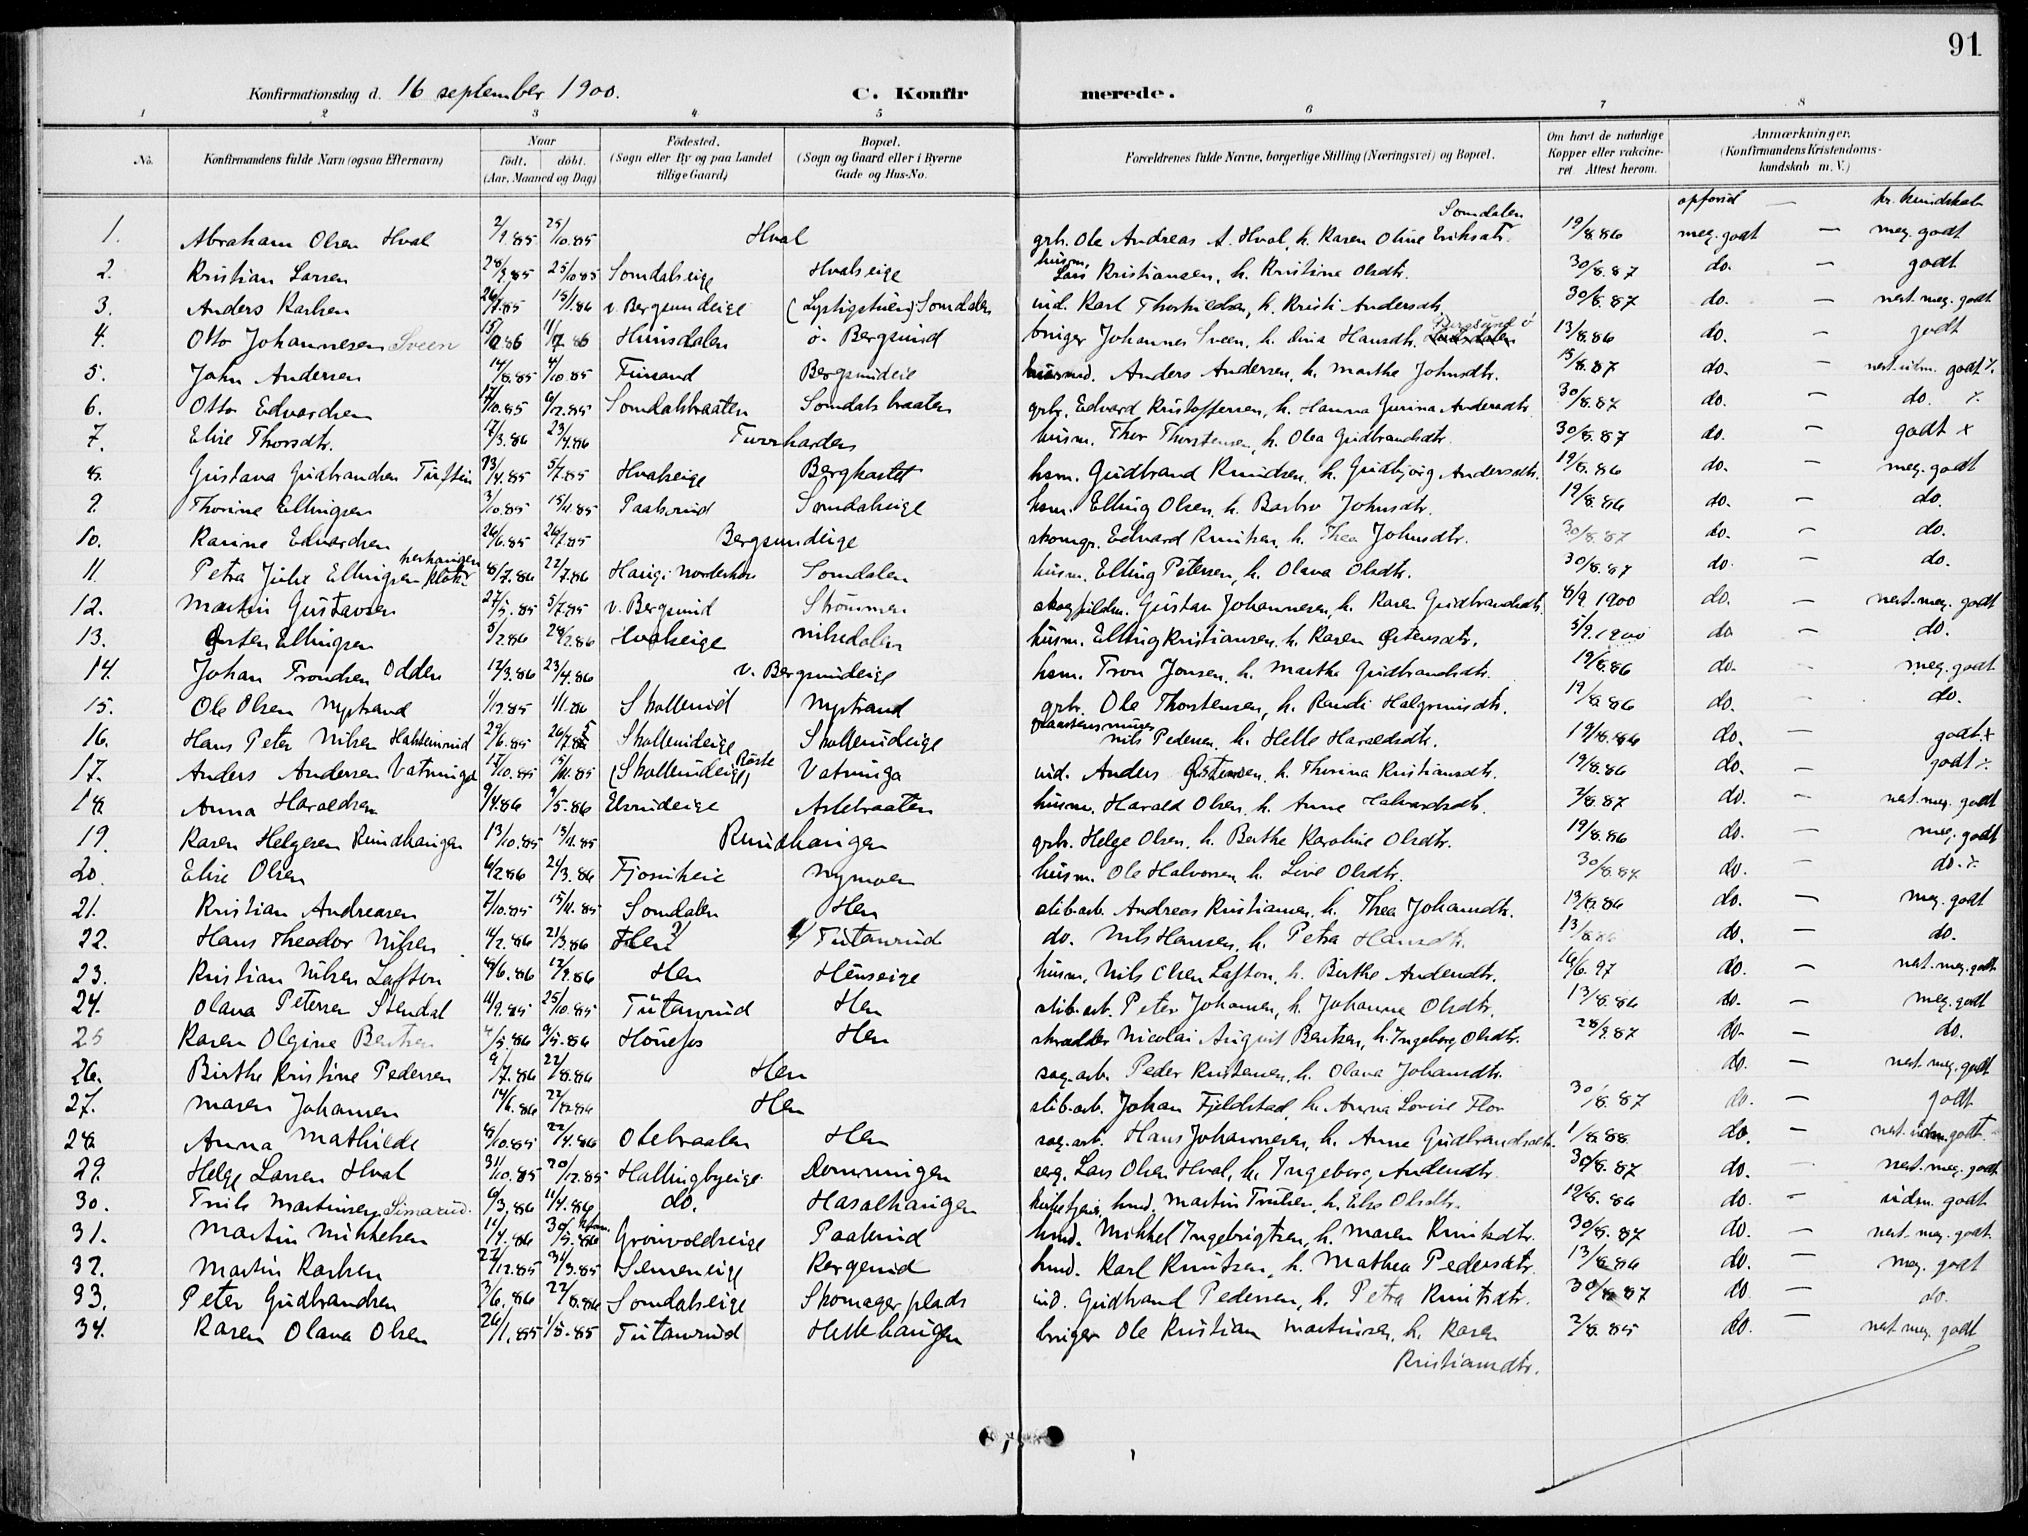 91
Konfirmationsdag d. 16 september 1900. C. Konfirmerede.
1 2 3 4 5 6 7 8
No. Konfirmandens fulde Navn (ogsaa Efternavn) Naar født. døbt. (Aar, Maaned og Dag) Fødested. (Sogn eller By og paa Landet tillige Gaard) Bopæl. (Sogn og Gaard eller i Byerne Gade og Hus-No. Forældrenes fulde Navne, borgerlige Stilling (Næringsvei) og Bopæl. Om havt de naturlige Kopper eller vakcineret. Attest herom. Anmærkninger. (Konfirmandens Kristendomskundskab m. V.)
opførsel — kr. kundskab
1. Abraham Olsen Hval 2/9.85 25/10.85 Hval grbr. Ole Andreas A. Hval, h. Karen Oline Eriksdtr. Somdalen 19/8.86 meg. godt — meg. godt
2. Kristian Larsen 28/9.85 25/10.85 Somdalseige Hvalseige husm. Lars Kristiansen, h. Kristine Olsdtr. 30/8.87 do. — godt
3. Anders Karlsen 26/7.85 15/1.86 v. Bergsundeige (Lystigstuen) Somdalen ind. Karl Thorkildsen, h. Kristi Andersdtr. 30/8.87 do. — nest. meg. godt
4. Otto Johannesen Sveen 15/2.86 11/7.86 Hunsdalen ø. Bergsund bruger Johannes Sveen, h. Lina Hansdtr. Bergsund ø 13/8.86 do. godt
5. John Andersen 14/8.85 4/10.85 Finsand Bergsundeie husmd. Anders Andersen, h. Marthe Johnsdtr. 15/8.87 do. nest. udm. godt ٪
6. Otto Edvardsen 17/10.85 6/12.85 Somdalsbraaten Somdalsbraaten grbr. Edvard Kristoffersen, h. Hanna Jurina Andersdtr. 30/8.87 do. — do. ٪
7. Elise Thorsdtr. 17/3.86 23/4.86 husm. Thor Thorstensen, h. Olea Gudbrandsdtr. 30/8.87 do. — godt x
8. Gustava Gudbrandsen Tuftin 13/4.85 5/7.85 Hvalseige Bergkastet hsm. Gudbrand Knudsen, h. Gudbjørg Andersdtr. 19/8.86 do. — meg. godt
9. Thorine Ellingsen 3/10.85 15/11.85 Paalsrud Somdalseige hsm. Elling Olsen, h. Barbro Johnsdtr. 19/8.86 do. — do.
10. Karine Edvardsen 26/6.85 26/7.85 Bergsundeige skomgr. Edvard Knutsen, h. Thea Johnsdtr. 30/8.87 do. — do.
11. Petra Julie Ellingsen 8/7.86 22/7.86 Haug i Norderhov Somdalen husm. Elling Petersen, h. Olava Olsdtr. 30/8.87 do. — do.
12. Martin Gustavsen 27/5.85 5/7.85 v. Bergsund Strømmen Gustav Johannesen, h. Karen Gudbrandsdtr. 8/9.1900 do. — nest. meg. godt
13. Østen Ellingsen 5/2.86 28/2.86 Hvalseige Nilsedalen husm. Elling Kristiansen, h. Karen Østensdtr. 5/9.1900 do — do.
14. Johan Tronsen Odden 12/3.86 23/4.86 v. Bergsundeige hsm. Tron Jonsen, h. Marthe Gudbrandsdtr. 19/8.86 do. — meg. godt
15. Ole Olsen Nystrand 1/12.85 1/1.86 Skollerud Nystrand grbr. Ole Thorstensen, h. Randi Halgrimsdtr. 19/8.86 do. — do.
16. Hans Peter Nilsen Halsteinrud 29/6.85 26/7.85 Skollerudeige Skollerudeige graastensmurer Nils Pedersen, h. Helle Haraldsdtr. 19/8.86 do. — godt x
17. Anders Andersen Vatninga 17/10.85 15/11.85 (Skollerudeige) Røste Vatninga ind. Anders Østensen, h. Thorina Kristiansdtr. 19/8.86 do. — godt ٪
18. Anna Haraldsen 9/4.86 9/5.86 Elsrudeige Aslebraaten husm. Harald Olsen, h. Anne Halvardsdtr. 2/8.87 do. — nest. meg. godt
19. Karen Helgesen Rundhaugen 13/10.85 13/11.85 Rundhaugen grbr. Helge Olsen, h. Berthe Karoline Olsdtr. 19/8.86 do. — meg. godt
20. Elise Olsen 6/2.86 24/3.86 Nymoen husm. Ole Halvorsen, h. Live Olsdtr. 30/8.87 do. — do. ٪
21. Kristian Andreasen 7/10.85 15/11.85 Somdalen Hen slib.arb. Andreas Kristiansen, h. Thea Johansdtr. 13/8.86 do. — meg. godt
22. Hans Theodor Nilsen 14/2.86 21/3.86 Hen Tutanrud do. Nils Hansen, h. Petra Hansdtr. 13/8.86 do. — do.
23. Kristian Nilsen Lafton 8/6.86 12/9.86 Hen Henseige husm. Nils Olsen Lafton, h. Birthe Andersdtr. 16/6.97 do. — nest. meg. godt
24. Olava Petersen Stendal 11/9.85 25/10.85 Tutanrud Hen slib.arb. Peter Johansen, h. Johanna Olsdtr. 13/8.86 do. — meg. godt
25 Karen Olgine Bentsen 4/5.86 9/5.86 Hønefos Hen skrædder Nicolai August Bentsen, h. Ingeborg Olsdtr. 28/9.87 do. — do.
26. Birthe Kristine Pedersen 9/7.86 22/8.86 Hen sag.arb. Peder Kristensen, h. Olava Johansdtr. do. — nest. meg. godt
27. Maren Johansen 14/6.86 22/8.86 Hen slib.arb. Johan Fjeldstad, h. Anna Lovise Flor 30/8.87 do. — godt
28. Anna Mathilde 8/10.85 22/4.86 Olebraaten Hen sag.arb. Hans Johannesen, h. Anne Gudbrandsdtr. 1/8.88 do. — nest. udm. godt
29. Helge Larsen Hval 31/10.85 20/12.85 Hallingbyeige Domningen Lars Olsen Hval, h. Ingeborg Andersdtr. 30/8.87 do. — nest. meg. godt
30. Truls Martinsen Simarud. 9/3.86 11/4.86 do. Hasalhaugen kirketjener, hmd. Martin Trulsen, h. Else Olsdtr. 19/8.86 do. — udm. godt
31. Martin Mikkelsen 11/4.86 30/5.86 Grønvoldseige Paalsrud hmd. Mikkel Ingebrigtsen, h. Maren Knutsdtr. 30/8.87 do. — nest. meg. godt
32. Martin Karlsen 22/12.85 31/3.85 Semeneige Bergerud hmd. Karl Knutsen, h. Mathea Pedersdtr. 13/8.86 do. — meg. godt
33. Peter Gudbrandsen 3/6.86 22/8.86 Somdalseige Skomagerplads ind. Gudbrand Pedersen, h. Petra Knutsdtr. 30/8.87 do — do.
34. Karen Olava Olsen 26/1.85 1/5.85 Tutanrud Hellehaugen bruger Ole Kristian Martinsen, h. Karen 2/8.85 do. — nest. meg. godt
Kristiansdtr.